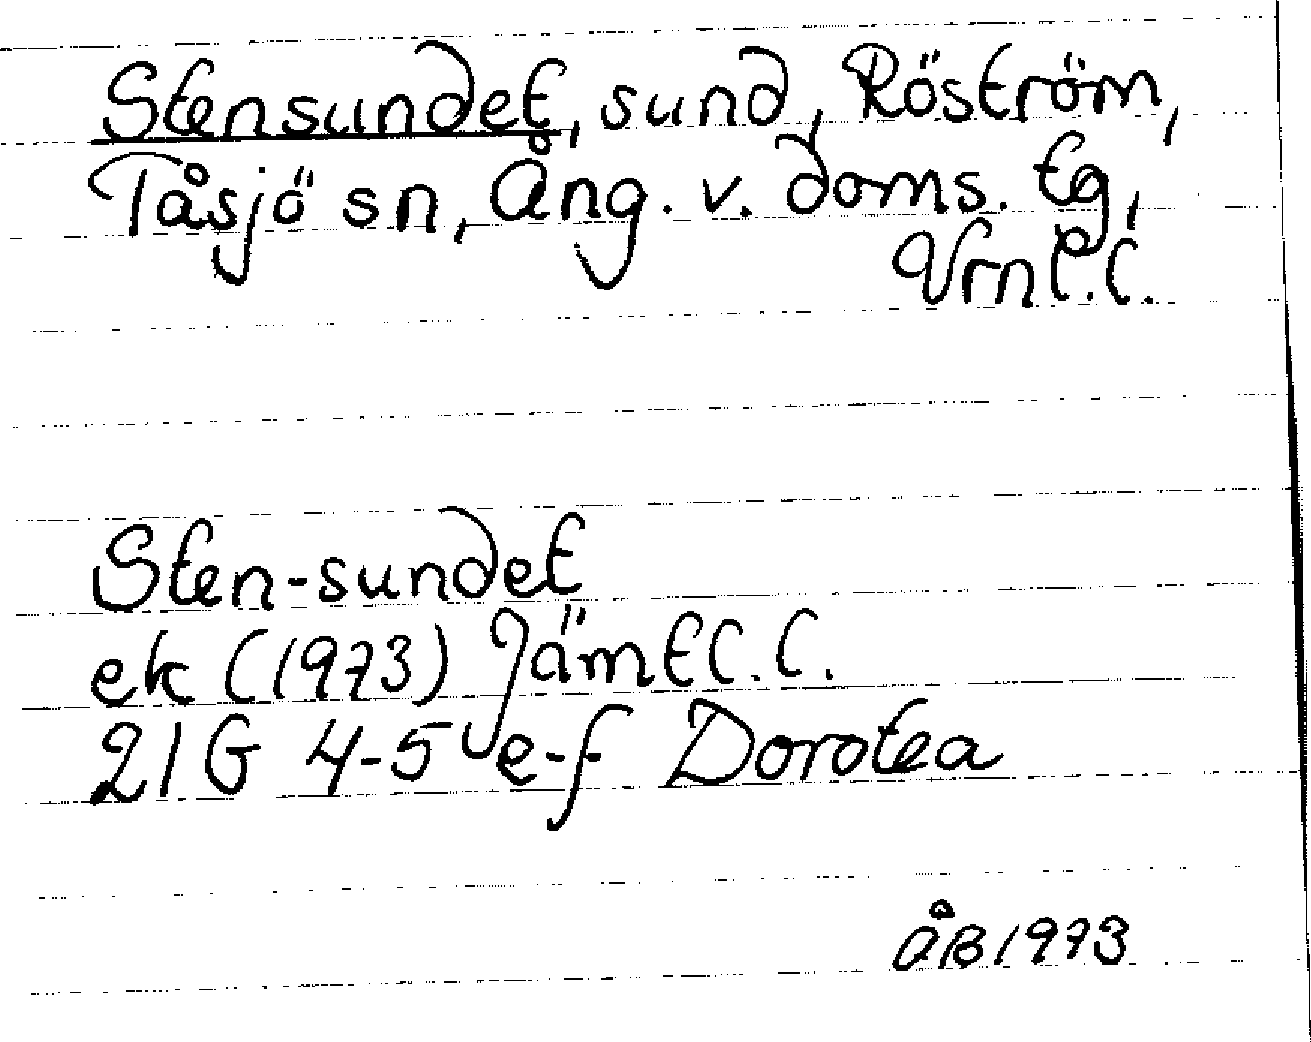 Stensundet, sund, Röström,
Tåsjö sn, Ång. v. doms. tg,
Vrnl.l.
Sten-sundet
ek (1973) Jämtl.l.
21G 4-5 e-f Dorotea
ÅB1973